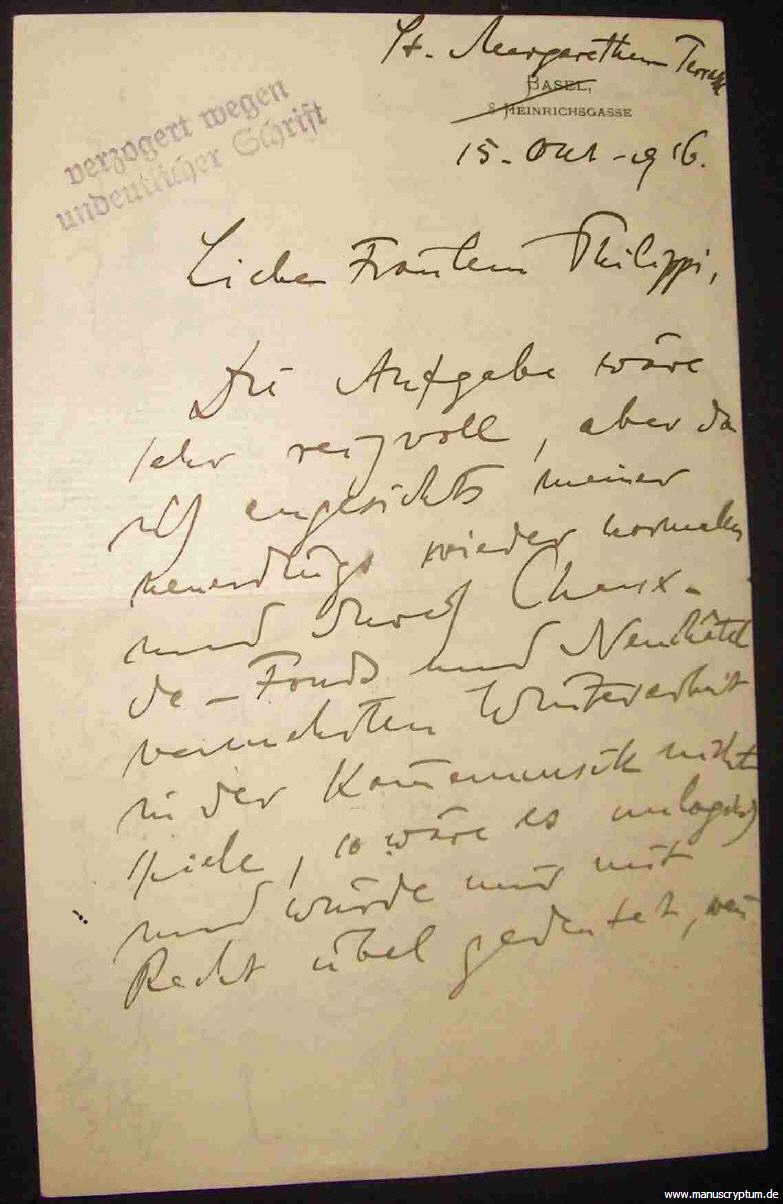 St. Margarethen Terrasse
BASEL,
8 HEINRICHSGASSE
verzogert wegen
undeutlicher Schrift
15. Okt. 1916.
Liebes Fräulein Philippi,
Die Aufgabe wäre
sehr reizvoll, aber da
ich angesichts meiner
neuerdings wieder normalen
und durch Chaux-
de-Fonds und Neuchâtel
vermehrten Winterarbeit
in der Kammermusik nicht
spiele, so wäre es unlogisch
und würde mir mit
Recht übel gedeutet, wenn
www.manuscryptum.de